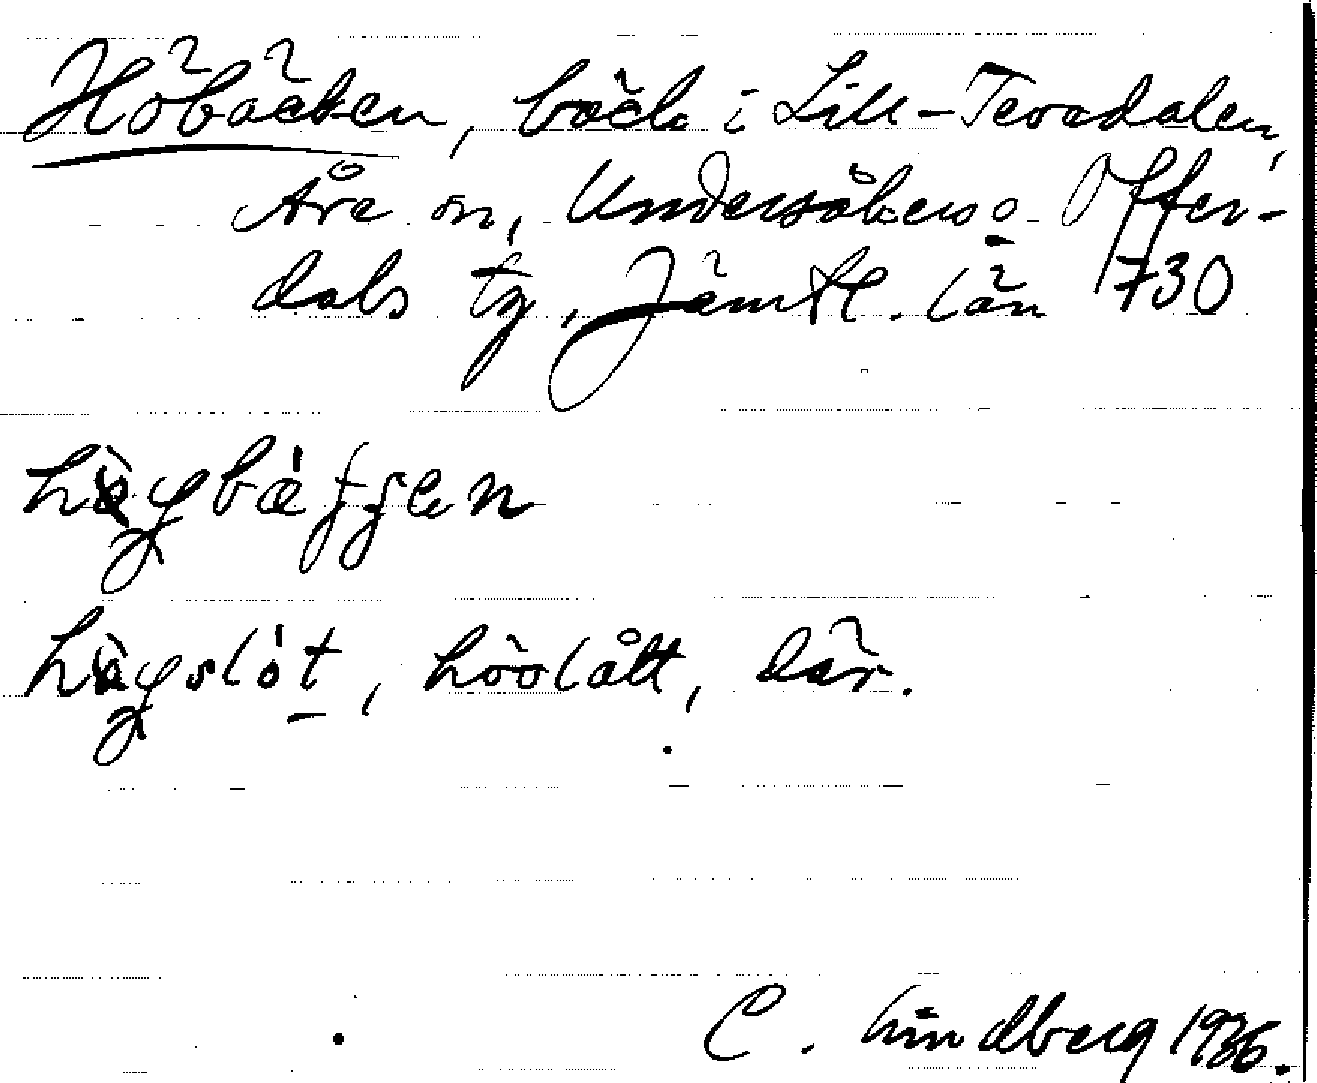 Höbäcken, bäck i Lill-Tevedalen,
Åre sn, Undersåkers o. Offer-
dals tg, Jämtl. län 730
höslått, där.
C. Lindberg 1936.